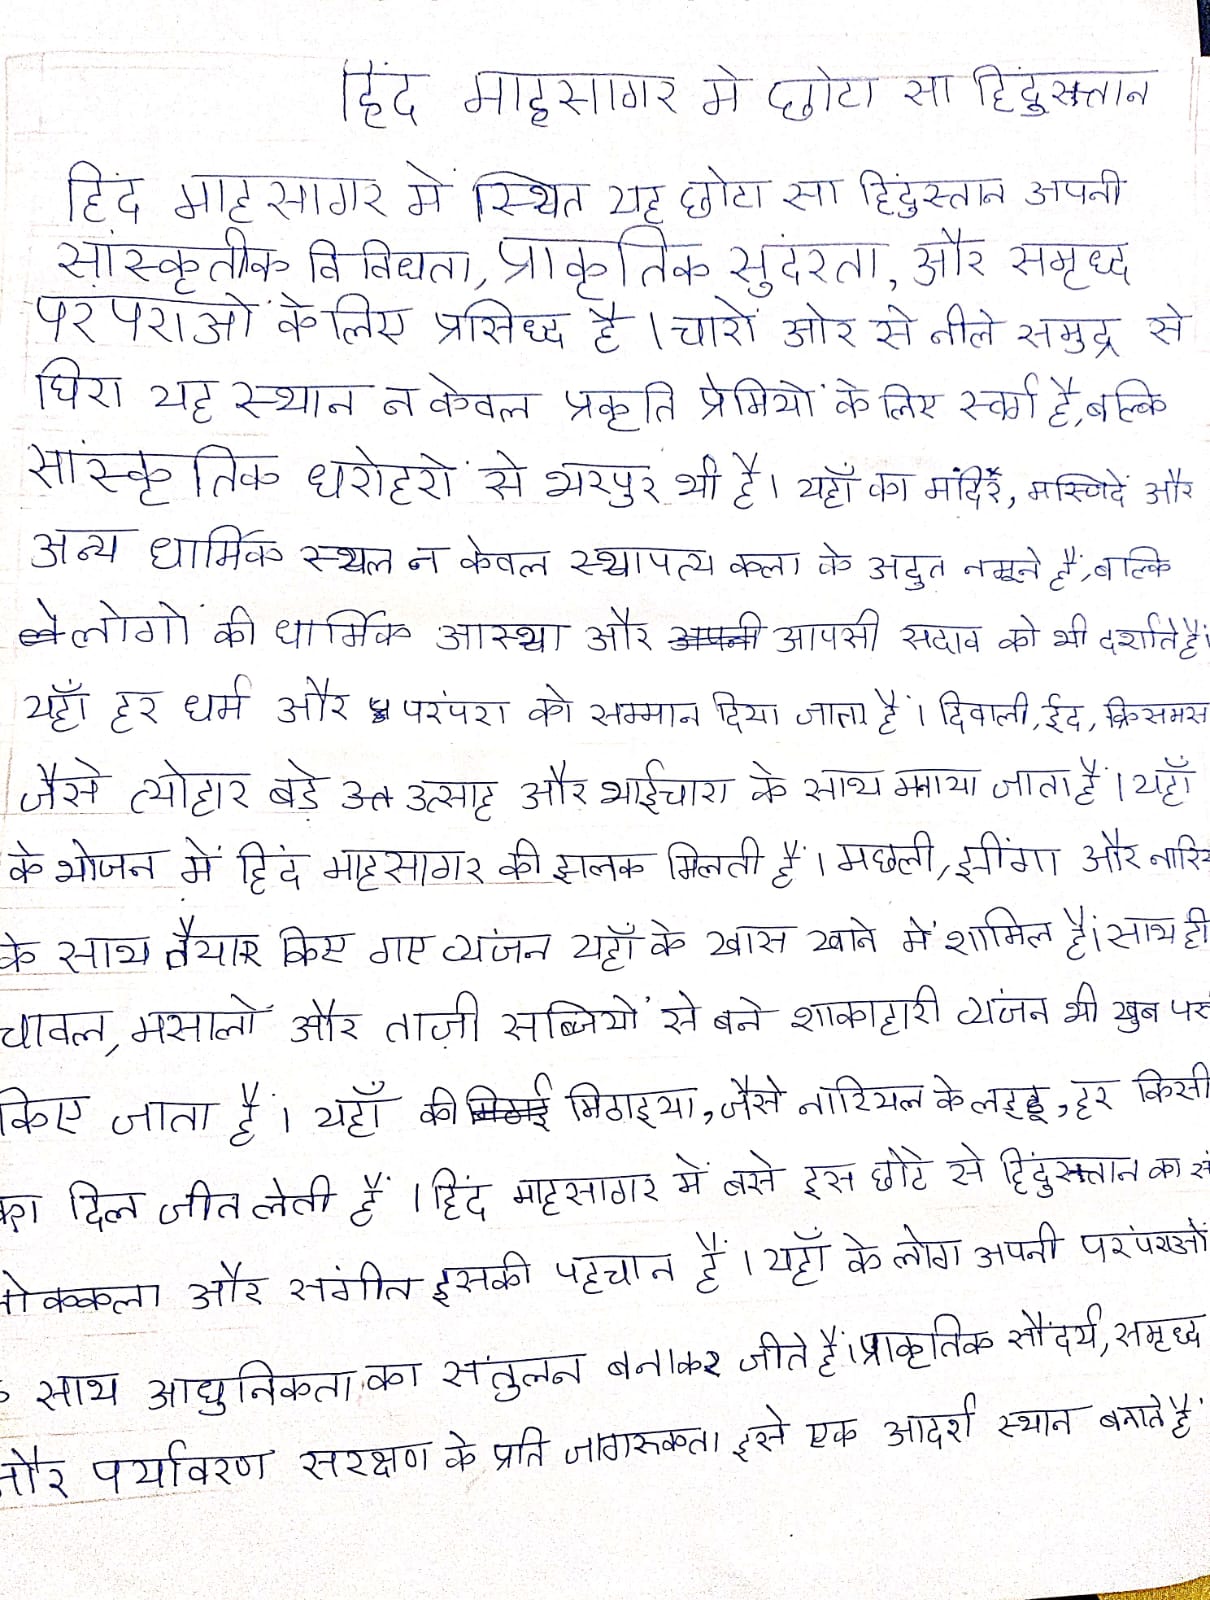 हिंद माहसागर मे छोटा सा हिंदुस्तान
हिंद माहसागर में स्थित यह छोटा सा हिंदुस्तान अपनी
सांस्कृतीक विविधता, प्राकृतिक सुदंरता, और समृध्द
परंपराओं के लिए प्रसिध्द है । चारों ओर से नीले समुद्र से
घिरा यह स्थान न केवल प्रकृति प्रेमियों के लिए स्वर्ग है, बल्कि
सांस्कृतिक धरोहरों से भरपुर भी है। यहाँ का मंदिरें, मस्जिदें और
अन्य धार्मिक स्थल न केवल स्थापत्य कला के अदुत नमूने हैं, बल्कि
लोगों की धार्मिक आस्था और आपसी सदाव को भी दर्शाते हैं।
यहाँ हर धर्म और परंपरा को सम्मान दिया जाता है । दिवाली, ईद, क्रिसमस
जैसे त्योहार बड़े उत्साह और भाईचारा के साथ मनाया जाता हैं । यहाँ
के भोजन में हिंद माहसागर की झलक मिलती हैं । मछली, झींगा और
के साथ तैयार किए गए व्यंजन यहाँ के खास खाने में शामिल हैं। साथ ही
चावल, मसालों और ताज़ी सब्जियों से बने शाकाहारी व्यंजन भी खुब
किए जाता हैं । यहाँ की मिठाइया, जैसे नारियल के लड्डू, हर किसी
का दिल जीत लेती हैं । हिंद माहसागर में बसे इस छोटे से हिंदुस्तान का
और संगीत इसकी पहचान हैं । यहाँ के लोग अपनी परंपराओं
साथ आधुनिकता का संतुलन बनाकर जीते हैं। प्राकृतिक सौंदर्य, समृध्द
और पर्यावरण सरक्षण के प्रति जागरुकता इसे एक आदर्श स्थान बनाते हैं